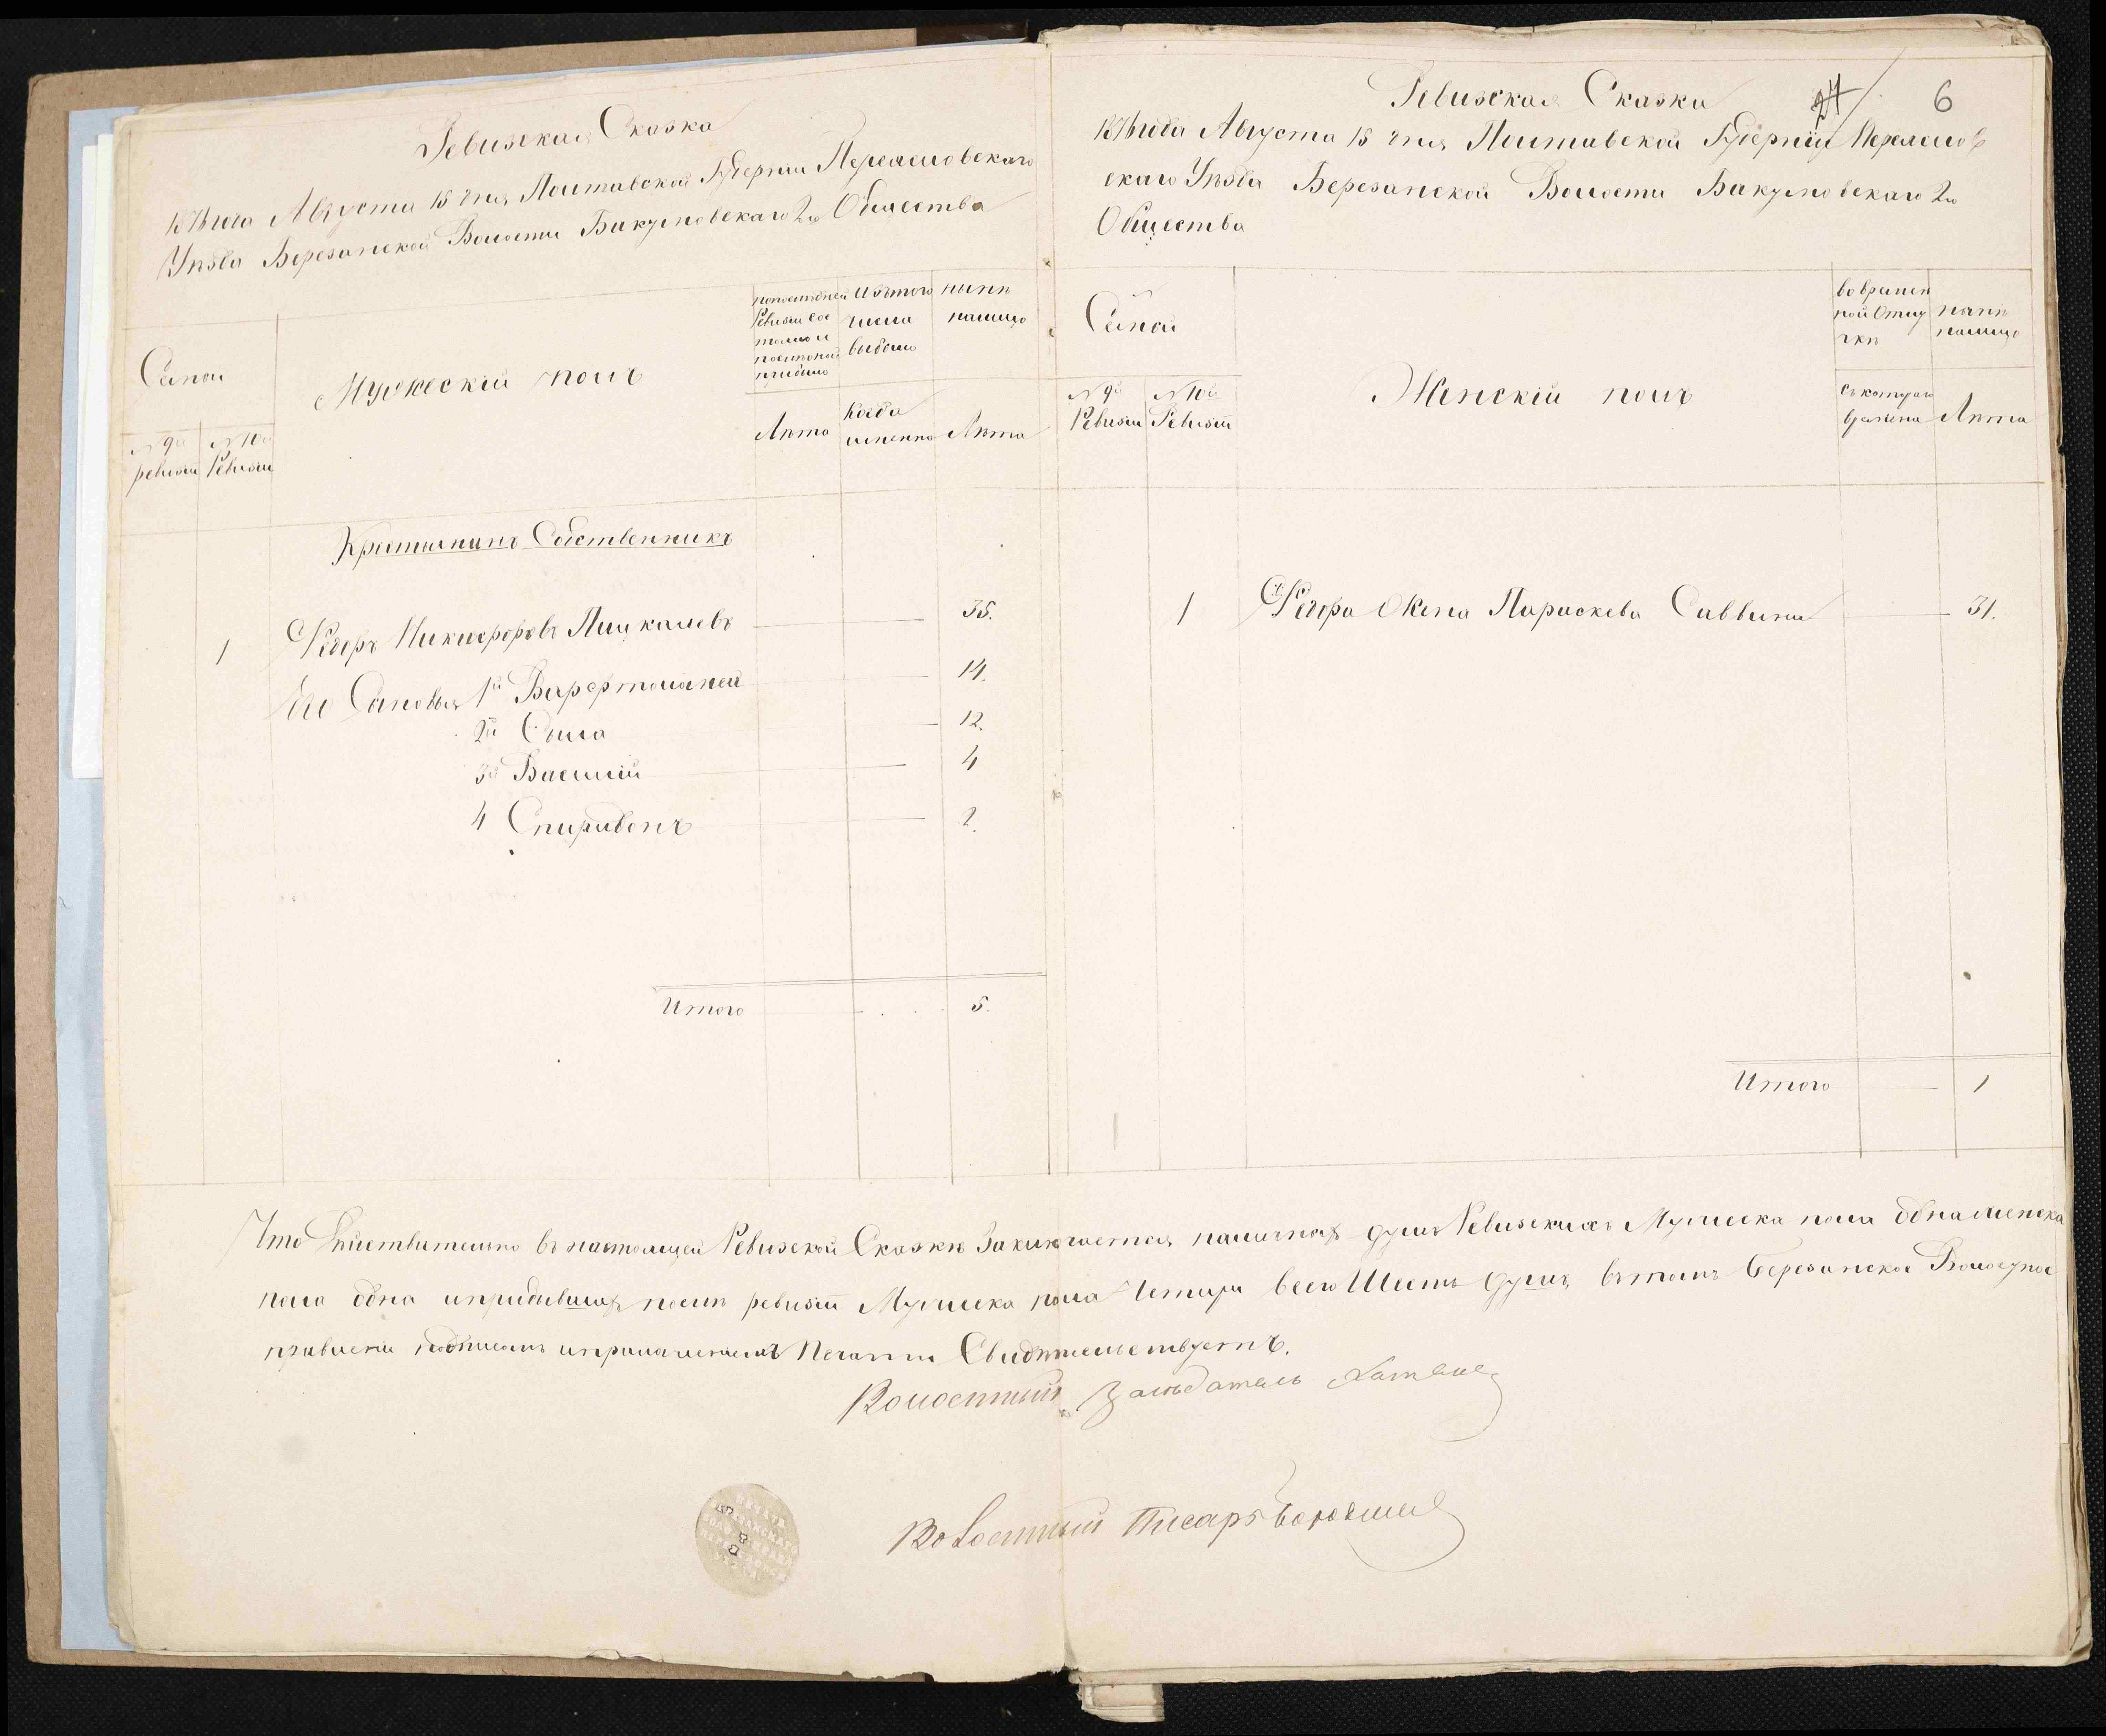 Ревизская Сказка
Августа 15 дня Полтавской Губерніи Переясловскаго
Уѣзда Березанской Волости Бакумовскаго 2го Общества
Семьи
№ 9й ревизіи
№ 10й Ревизіи
Мужескій полъ
по послѣдней Ревизіи состояло и послѣ оной прибыло
Лѣта
Изъ того числа выбыло
Когда именно
нынѣ на лицо
Лѣта
Крестьянинъ Собственникъ
1 Ѳедоръ Никифоровъ 35.
Его Сановья 1й Варфтоломей 14.
2й Сыла 12.
3й Василій 4
4 Спиридонъ 2.
Итого 5.
24 6
Ревизская Сказка
Августа 15 дня Полтавской Губерніи Переяслов
скаго Уѣзда Березанской Волости Бакумовскаго 2го
Общества
Семьи
№ 9й Ревизіи
№ 10й Ревизіи
Женскій полъ
во времен
ной Отлу
чкѣ
съ котораго
времени
нынѣ
налицо
Лѣта
1 Ѳедора Жена Параскева Саввина 31.
Итого 1
Что Дѣйствительно въ настоящей Ревизской Сказкѣ Заключается наличныхъ душъ Ревизскихъ Мужеска пола одна женска
пола одна и прибывшихъ послѣ ревизіи Мужеска пола Четыри всего Шесть душъ, въ томъ Березанское Волостное
правленіе подписомъ и приложеніемъ Печати Свидѣтельствуетъ.
Волостный Засѣдатель
Волостный Писарь